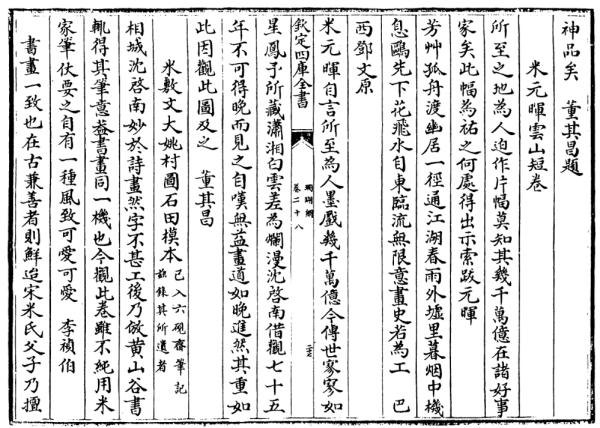 神品矣　董其昌題
米元暉雲山短卷
所至之地為人迫作片幅莫知其幾千萬億在諸好事
家矣此幅為祐之何處得出示索跋元暉
芳艸孤舟渡幽居一徑通江湖春雨外墟里暮烟中機
息鷗先下花飛水自東臨流無限意畫史若為工　巴
西鄧文原
米元暉自言所至為人墨戲幾千萬億今傳世寥寥如
欽定四庫全書
珊瑚網
卷二十八
星鳳予所藏瀟湘白雲差為爛漫沈啓南借觀七十五
年不可得晚而見之自嘆無益畫道如晚進然其重如
此因觀此圖及之　董其昌
米敷文大姚村圖石田模本
已入六硯齋筆記
玆錄其所遺者
相城沈啓南妙於詩畫然字不甚工後乃倣黄山谷書
輒得其筆意葢書畫同一機也今觀此卷雖不純用米
家筆仗要之自有一種風致可愛可愛　李禎伯
書畫一致也在古兼善者則鮮迨宋米氏父子乃擅